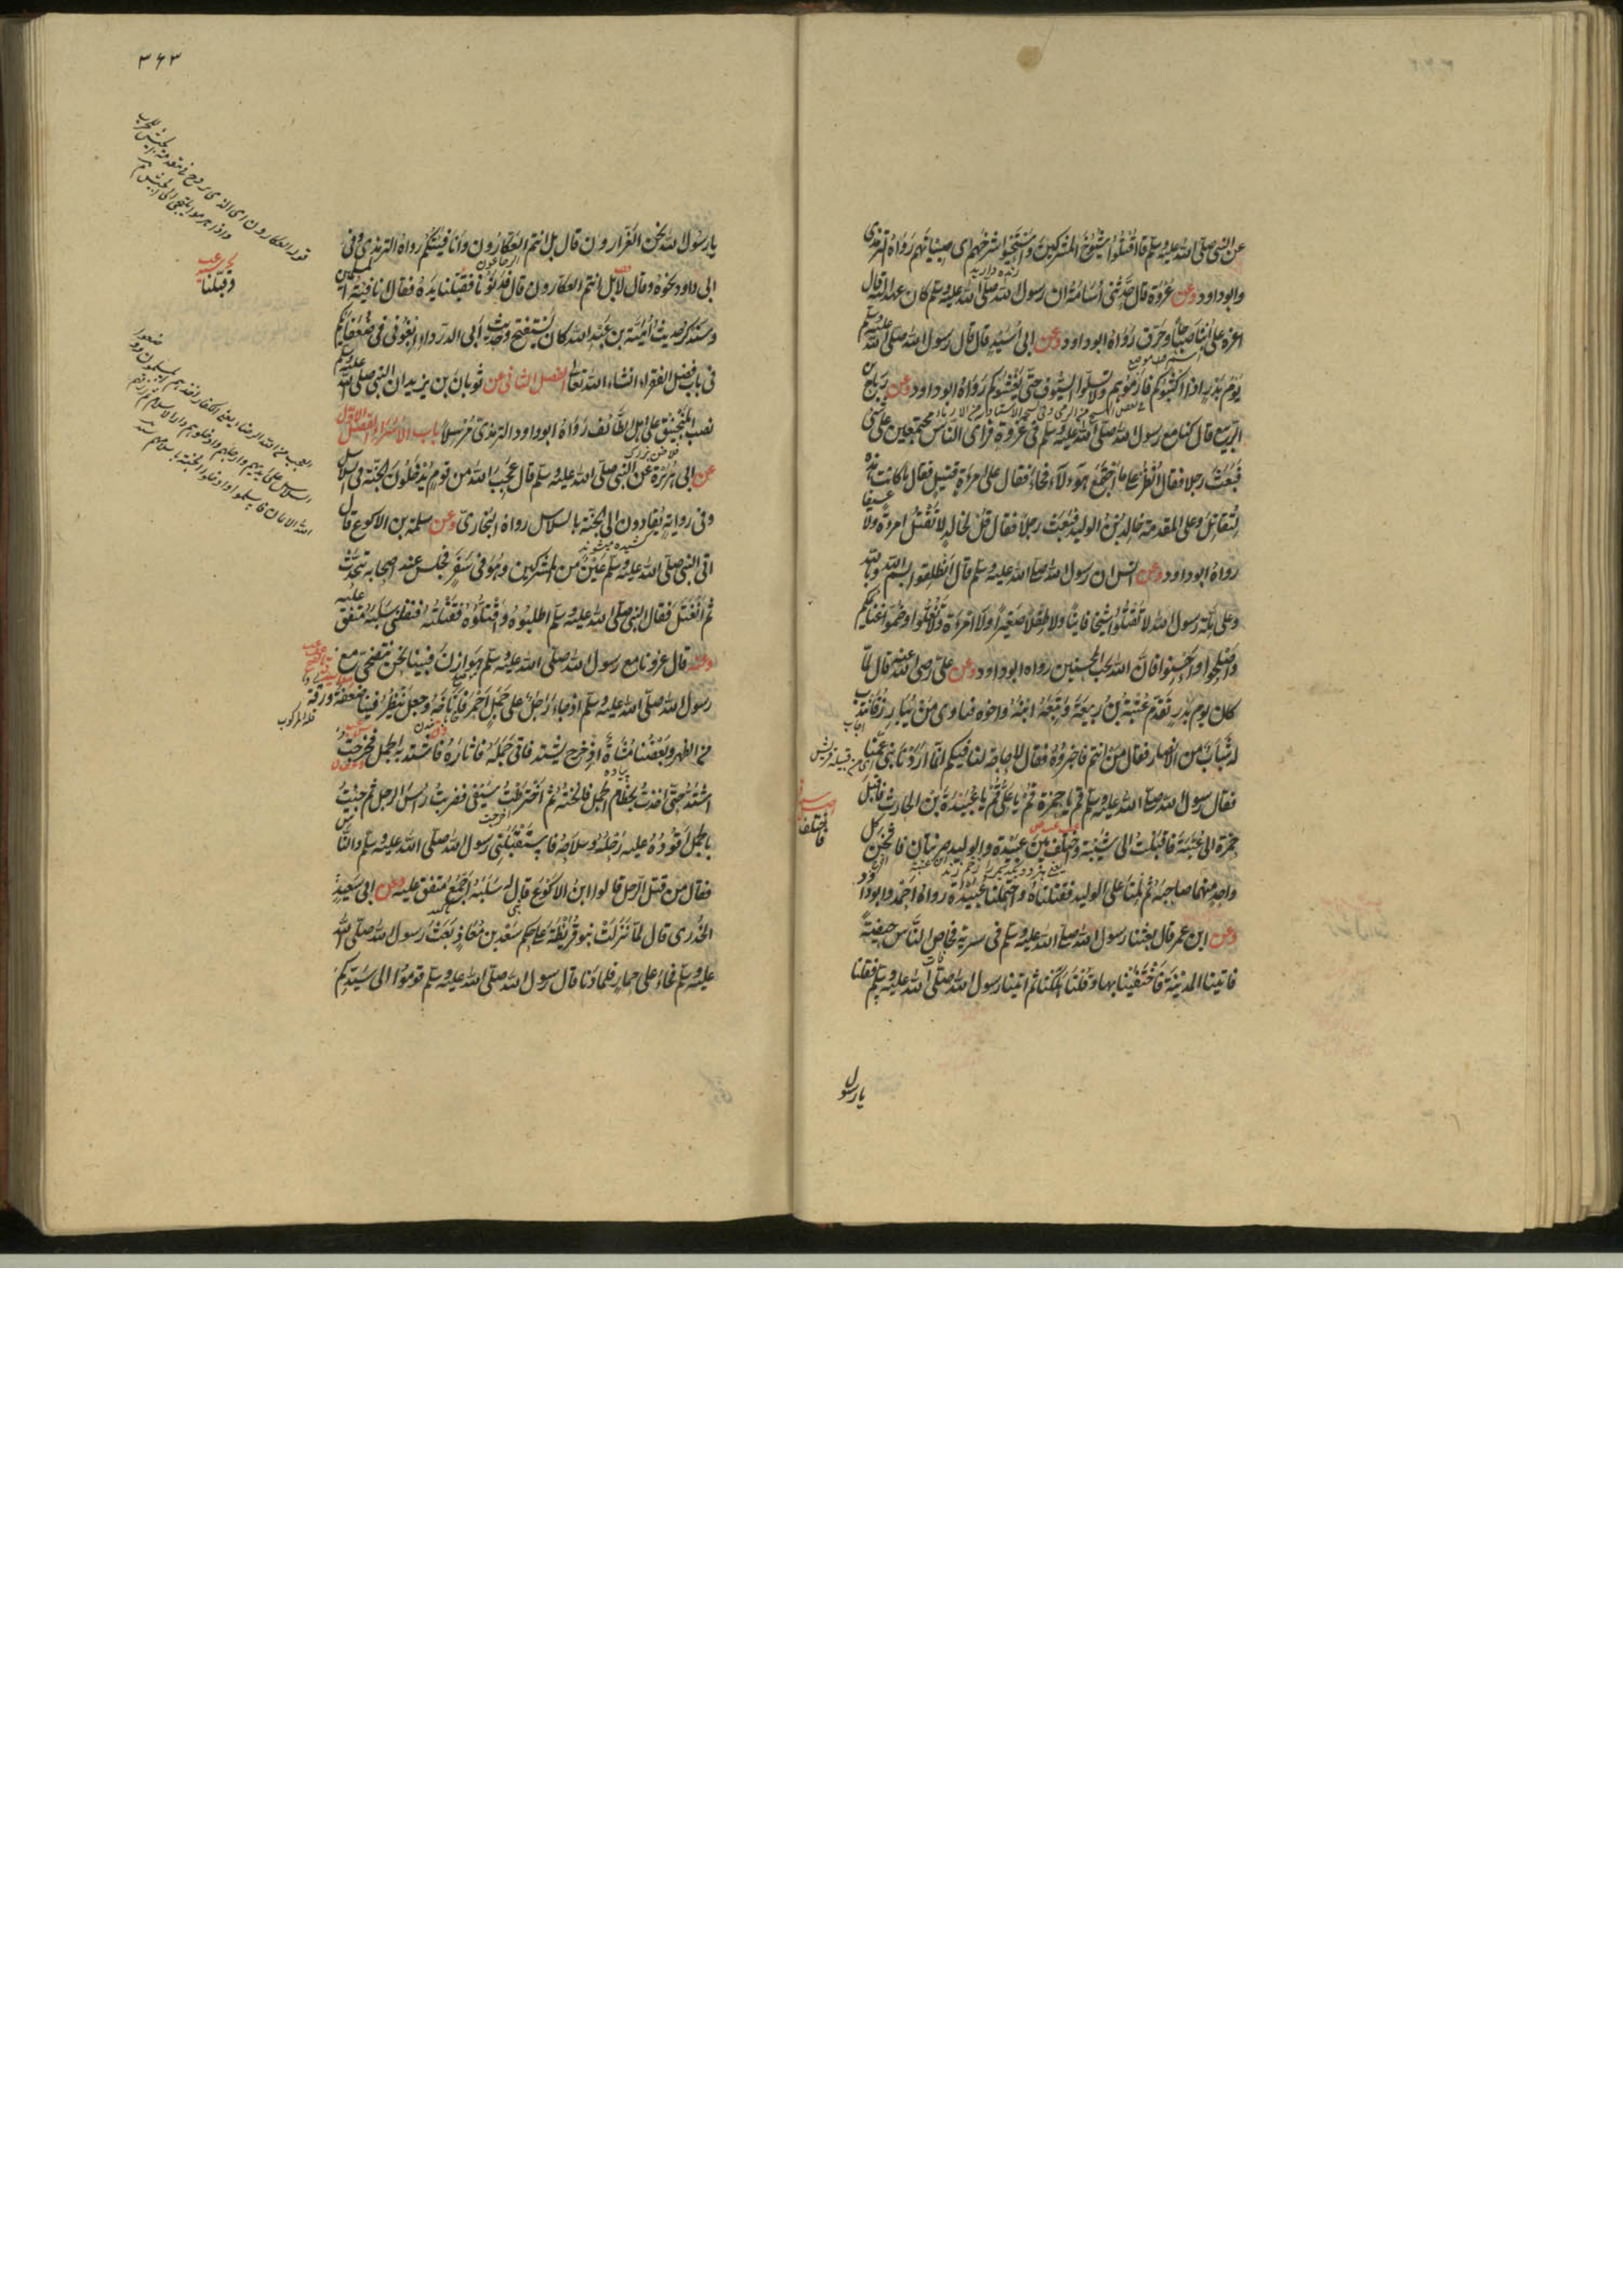 عن النبي صلى الله عليه وسلم قال اقتلوا شيوخ المشركين واستحيوا شرخهم اى صبيانهم رواه الترمذى
وابو داود وعن عروة قال حدثنى اسامة ان رسول الله صلى الله عليه وسلم كان عهد اليه قال
اغر على ابنا صباحا وحرق رواه ابو داود وعن ابى اسيد قال قال رسول الله صلى الله عليه وسلم
يوم بدر اذا اكثبوكم فارموهم ولا تسلوا السيوف حتى يغشوكم رواه ابو داود وعن رباح بن
الربيع قال كنا مع رسول الله صلى الله عليه وسلم فى غزوة فراى الناس مجتمعين على شئ
فبعث رجلا فقال انظر على ما اجتمع هؤلاء فجاء فقال على امراة قتيل فقال ما كانت هذه
لتقاتل وعلى المقدمة خالد بن الوليد فبعث رجلا فقال قل لخالد لا تقتل امرءة ولا عسيفا
رواه ابو داود وعن انس ان رسول الله صلى الله عليه وسلم قال انطلقوا بسم الله وبالله
وعلى ملة رسول الله لا تقتلوا شيخا فانيا ولا طفلا صغيرا ولا امرءة ولا تغلوا وضموا غنايمكم
واصلحوا واحسنوا فان الله يحب المحسنين رواه ابو داود وعن على رضى الله عنه قال لما
كان يوم بدر تقدم عتبة بن ربيعة وتبعه ابنه واخوه فنادى من يبارز فانتدب
له شباب من الانصار فقال من انتم فاخبروه فقال لا حاجة لنا فيكم انما اردنا بنى عمنا
فقال رسول الله صلى الله عليه وسلم قم يا حمزة قم يا على قم يا عبيدة بن الحارث فاقبل
حمزة الى عتبة فاقبلت الى شيبة واختلف بين عبيدة والوليد ضربتان فاثخن كل
واحد منهما صاحبه ثم ملنا على الوليد فقتلناه واحتملنا عبيدة رواه احمد وابو داود
وعن ابن عمر قال بعثنا رسول الله صلى الله عليه وسلم فى سرية فحاص الناس حيصة
فاتينا المدينة فاختفينا بها وقلنا هلكنا ثم اتينا رسول الله صلى الله عليه وسلم فقلنا
يا رسول
٣٦٣
يا رسول الله نحن الفرارون قال بل انتم العكارون وانا فئتكم رواه الترمذى وفى
ابى داود نحوه وقال لا بل انتم العكارون قال فدنونا فقبلنا يده فقال انا فئة المسلمين
وسنذكر حديث امية بن عبد الله كان يستفتح وحديث ابى الدرداء ابغونى فى ضعفائكم
فى باب فضل الفقراء انشاء الله تعالى الفصل الثانى عن ثوبان بن يزيد ان النبى صلى الله عليه وسلم
نصب المنجنيق على اهل الطائف رواه ابو داود الترمذى مرسلا باب الاسراء الفصل الاول
عن ابى هريرة عن النبى صلى الله عليه وسلم قال عجب الله من قوم يدخلون الجنة فى السلاسل
وفى رواية يقادون الى الجنة بالسلاسل رواه البخارى وعن سلمة بن الاكوع قال
اتى النبى صلى الله عليه وسلم عين من المشركين وهو فى سفر فجلس عند اصحابه يتحدث
ثم انفتل فقال النبى صلى الله عليه وسلم اطلبوه واقتلوه فقتلته فنفلنى سلبه متفق عليه
وعنه قال غزونا مع رسول الله صلى الله عليه وسلم هوازن فبينا نحن نتضحى مع
رسول الله صلى الله عليه وسلم اذ جاء رجل على جمل احمر فاناخه وجعل ينظر وفينا ضعفة ورقة
من الظهر وبعضنا مشاة اذ خرج يشتد فاتى جمله فاثاره فاشتد به الجمل فخرجت
اشتد حتى اخذت بخطام الجمل فانخته ثم اخترطت سيفى فضربت راس الرجل ثم جئت
بالجمل اقوده عليه رحله وسلاحه فاستقبلنى رسول الله صلى الله عليه وسلم والناس
فقال من قتل الرجل قالوا ابن الاكوع قال له سلبه اجمع متفق عليه وعن ابى سعيد
الخدرى قال لما نزلت بنو قريظة على حكم سعد بن معاذ بعث رسول الله صلى الله
عليه وسلم فجاء على حمار فلما دنا قال رسول الله صلى الله عليه وسلم قوموا الى سيدكم